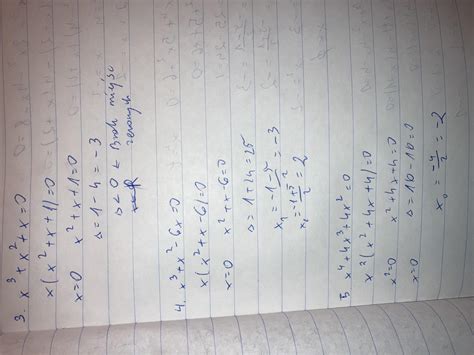 3. x³+x²+x=0
x(x²+x+1)=0
x=0 x²+x+1=0
Δ=1-4=-3
Δ<0 ← Brak miejsc
zerowych
4. x³+x²-6x=0
x(x²+x-6)=0
x=0 x²+x-6=0
Δ=1+24=25
x₁=\frac{-1-5}{2}=-3
x₂=\frac{-1+5}{2}=2
5. x⁴+4x³+4x²=0
x²(x²+4x+4)=0
x²=0 x²+4x+4=0
x=0 Δ=16-16=0
x₀=\frac{-4}{2}=-2